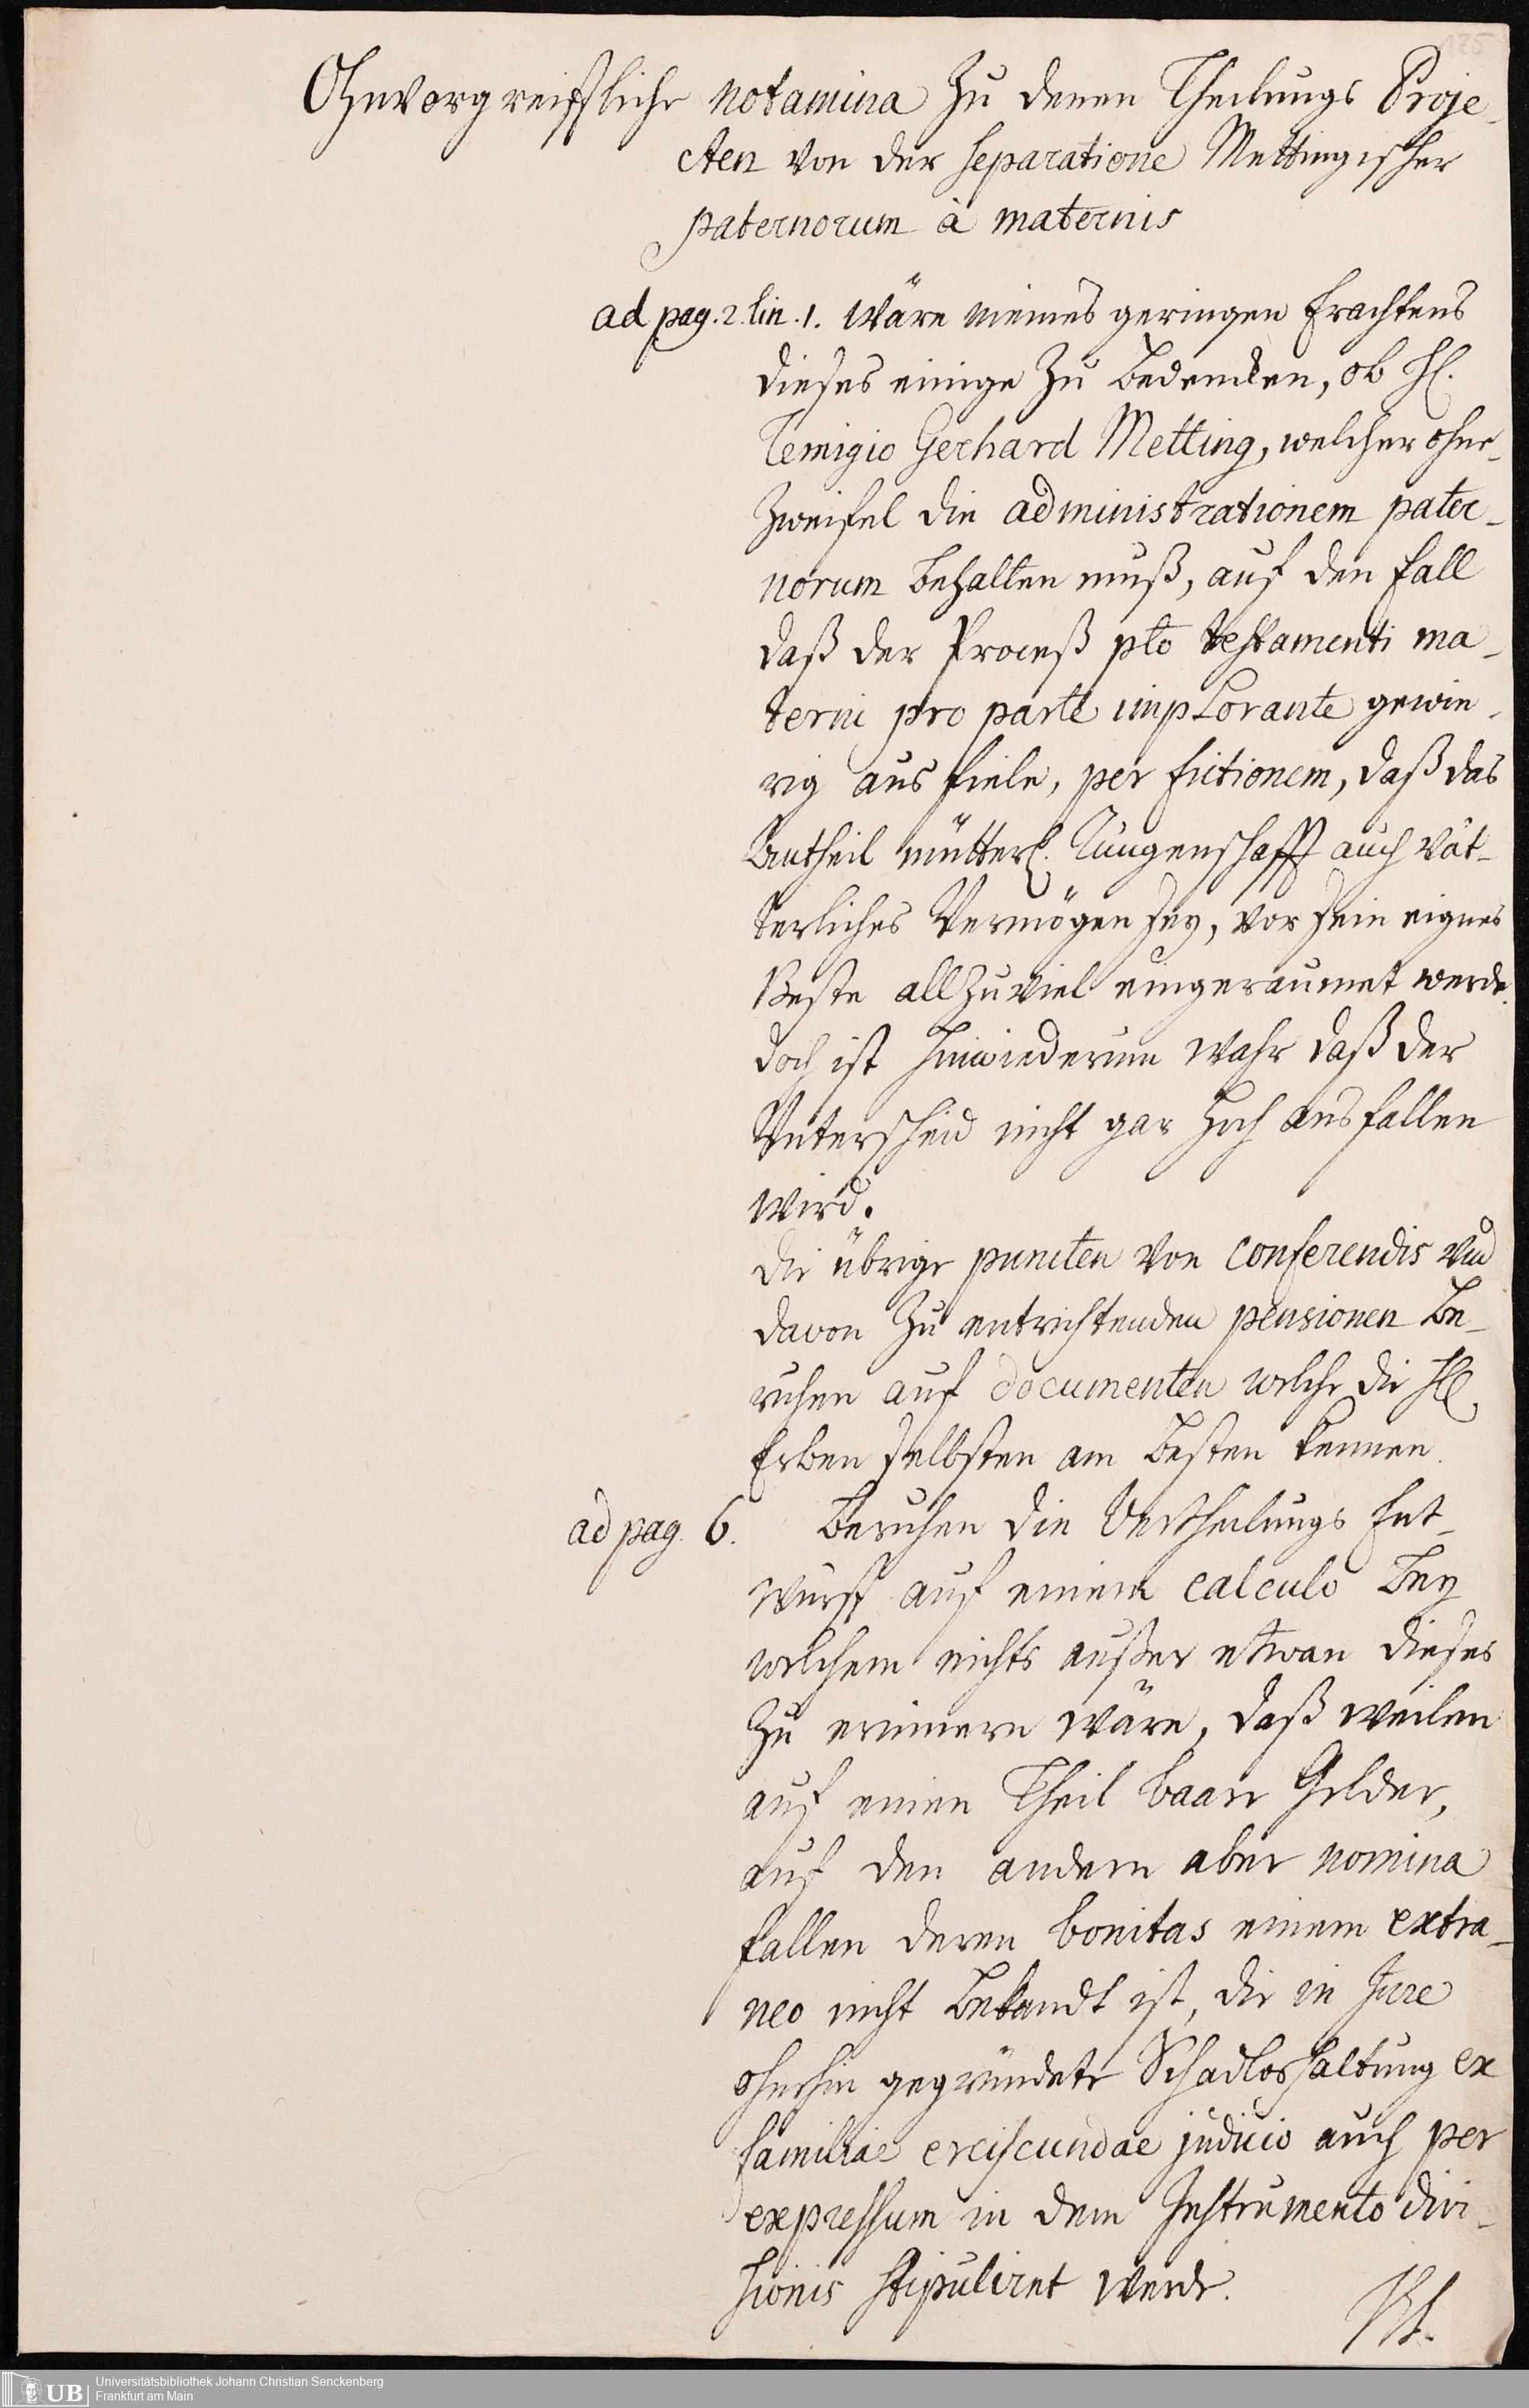 175
Ohnvorgreiffliche notamina zu denen Theilungs Proje-
cten von der separatione Mettingischer
paternorum à maternis
ad pag. 2. lin. 1. wäre meines geringen Erachtens
dieses einige zu bedencken, ob H.
Remigio Gerhard Metting, welcher ohne-
zweifel die administrationem pater-
norum behalten muß, auf den fall
daß der Proceß pto testamenti ma-
terni pro parte implorante gewie-
rig aus fiele, per fictionem, daß das
Antheil mütterl. Errungenschafft auch vät-
terliches Vermögen sey, vor sein eignes
Beste allzuviel eingeraumet werde.
doch ist hinwiederum wahr daß der
Unterscheid nicht gar hoch ausfallen
wird.
die übrige puncten von conferendis und
davon zu entrichtenden pensionen be-
ruhen auf documenten welche die HH.
Erben selbsten am besten kennen.
ad pag. 6. Beruhen die Vertheilungs Ent-
würff auf einem calculo bey
welchem nichts außer etwan dieses
zu erinnern wäre, daß weilen
auf einen Theil baare Gelder,
auf den andern aber nomina
fallen deren bonitas einem extra-
neo nicht bekandt ist, die in Jure
ohnehin gegründete Schadloshaltung ex
familiae erciscundae judicio auch per
expressum in dem Instrumento divi-
sionis stipuliret werde.
UB Universitätsbibliothek Johann Christian Senckenberg
Frankfurt am Main